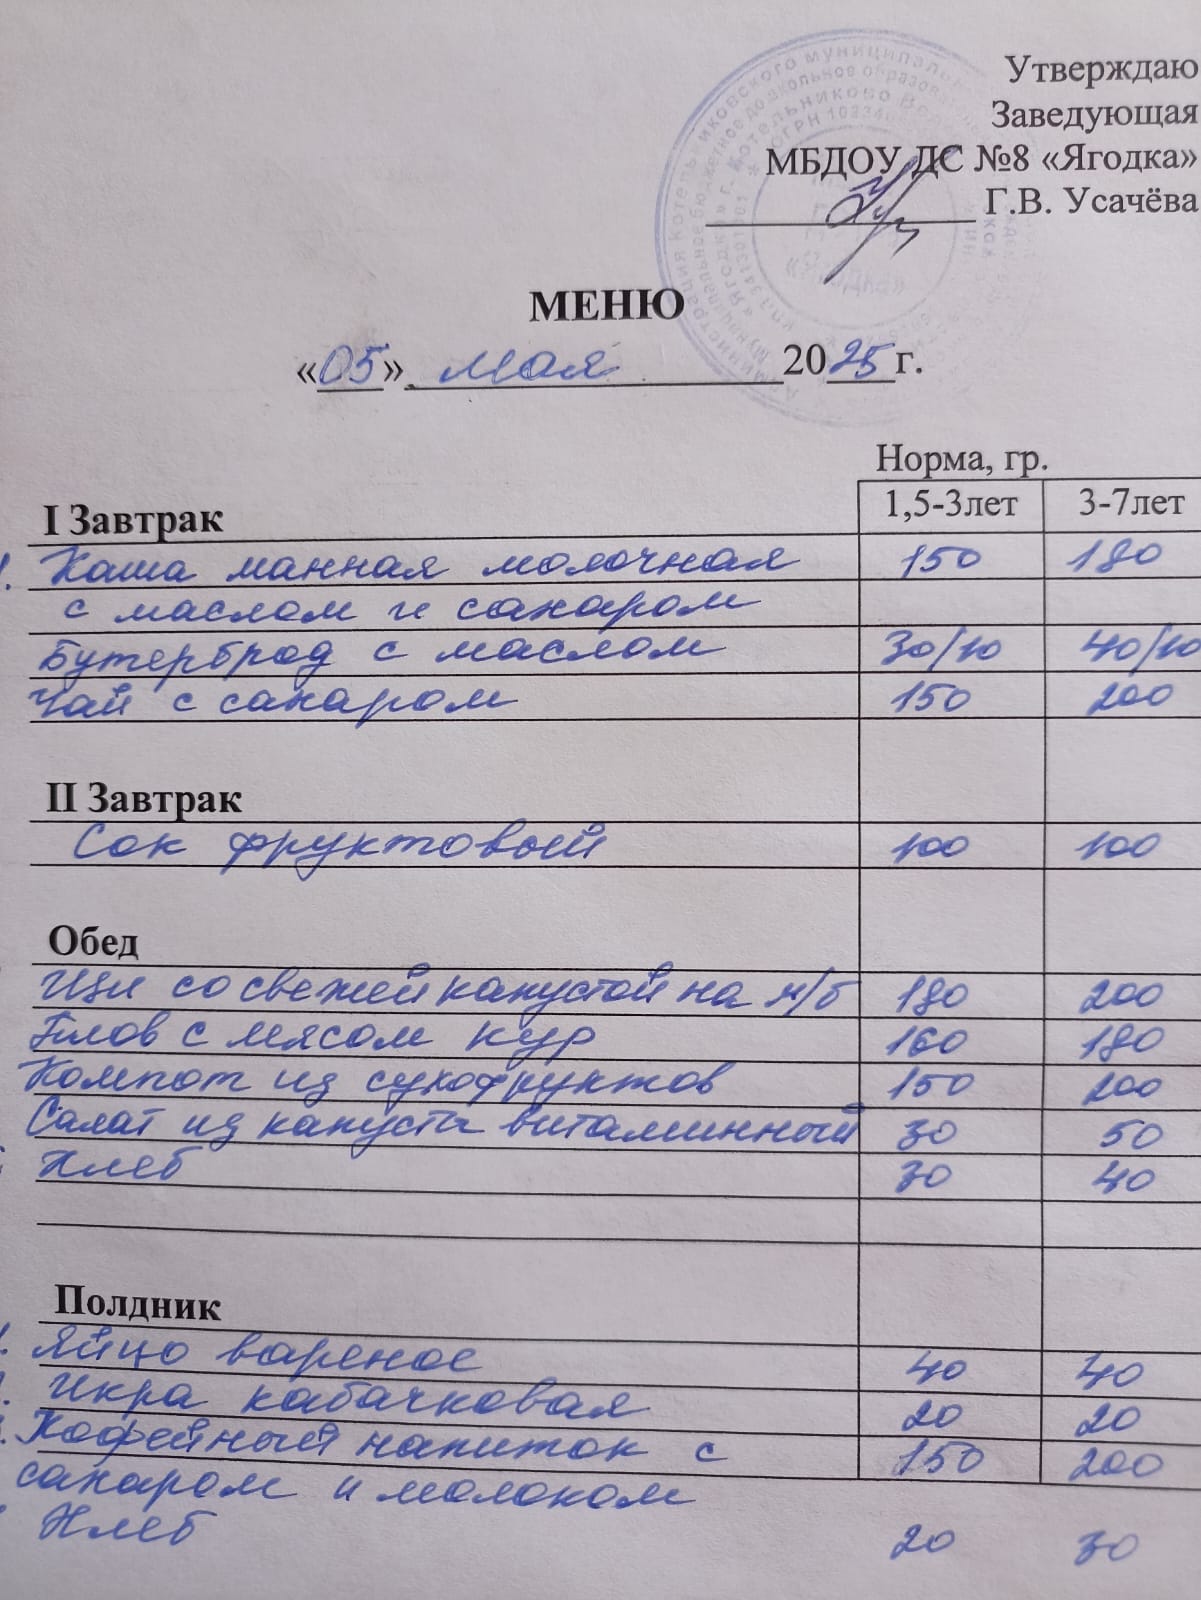 Утверждаю
Заведующая
МБДОУ ДС №8 «Ягодка»
Г.В. Усачёва
МЕНЮ
«05» мая 2025 г.
Норма, гр.
I Завтрак 1,5-3лет 3-7лет
Каша манная молочная 150 180
с маслом и сахаром
Бутерброд с маслом 30/10 40/10
Чай с сахаром 150 200
II Завтрак
Сок фруктовый 100 100
Обед
Щи со свежей капустой на м/б 180 200
Плов с мясом кур 160 180
Компот из сухофруктов 150 200
Салат из капусты витаминный 30 50
Хлеб 30 40
Полдник
Яйцо вареное 40 40
Икра кабачковая 20 20
Кофейный напиток с 150 200
сахаром и молоком
Хлеб 20 30